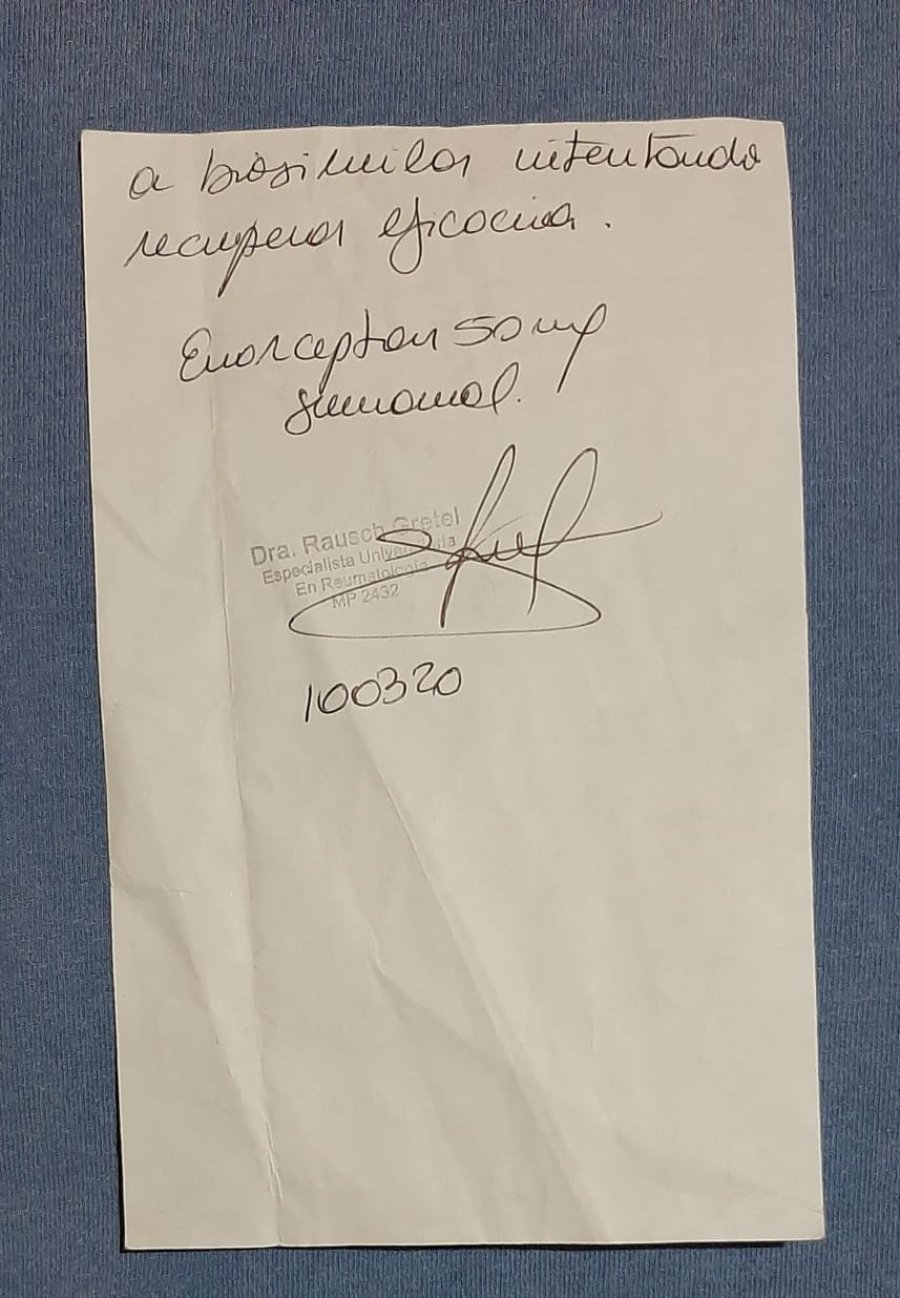 a biosimilar intentando
recuperar eficacia.
Enerceptan 50 mg
semanal.
Dra. Rausch Gretel
Especialista Universitaria
En Reumatología
MP 2432
100320